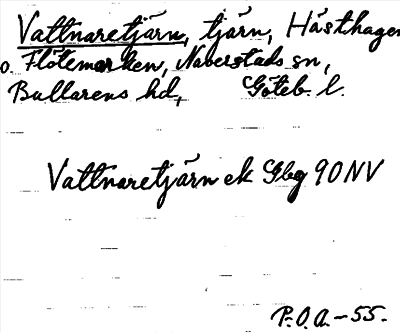 Vattnaretjärn, tjärn, Hästhagen
o. Flötemarken, Naverstads sn,
Bullarens hd, Göteb. l.
Vattnaretjärn ek Gbg 90 NV
P.O.A.-55.